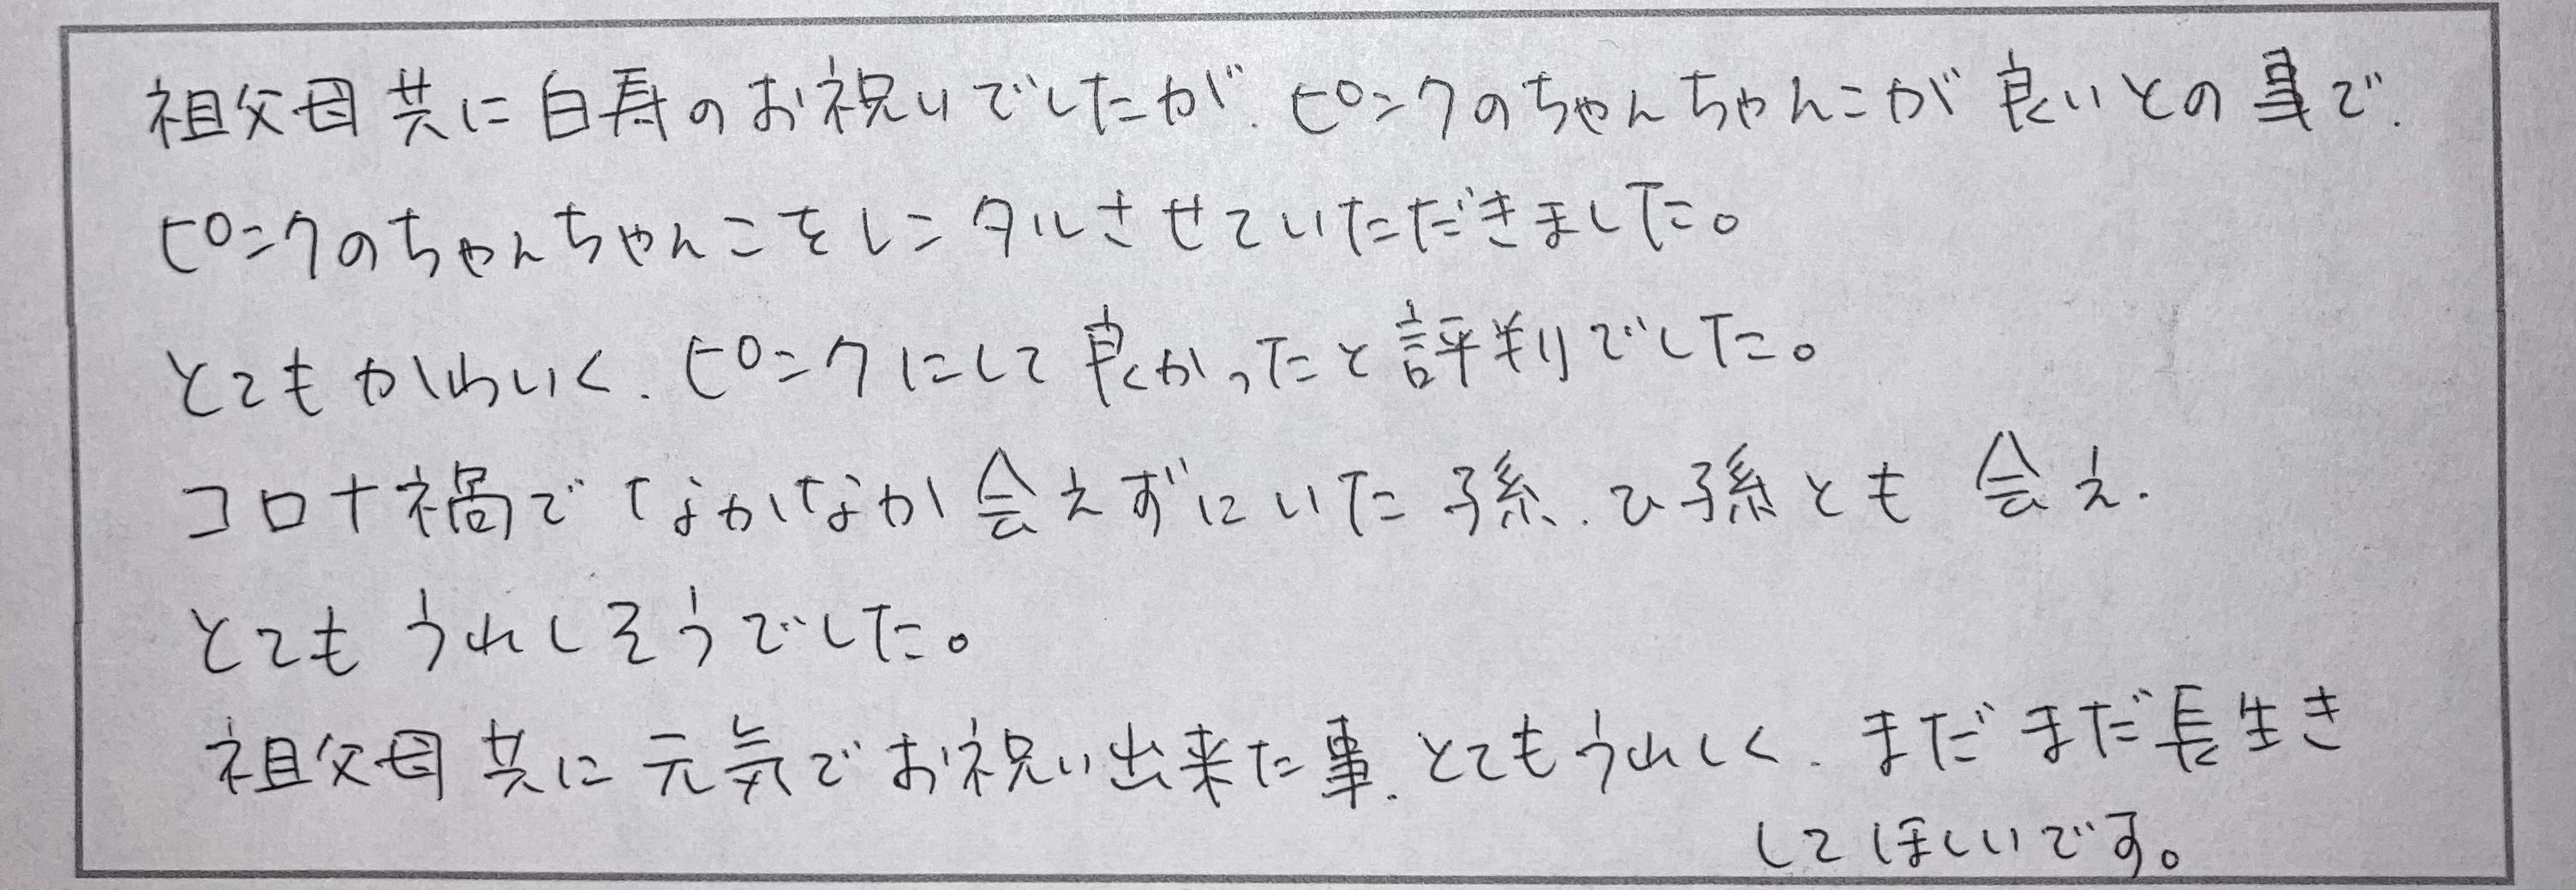 祖父母共に白寿のお祝いでしたが、ピンクのちゃんちゃんこが良いとの事で、
ピンクのちゃんちゃんこをレンタルさせていただきました。
とてもかわいく、ピンクにして良かったと評判でした。
コロナ禍でなかなか会えずにいた孫、ひ孫とも会え、
とてもうれしそうでした。
祖父母共に元気でお祝い出来た事、とてもうれしく、まだまだ長生き
してほしいです。